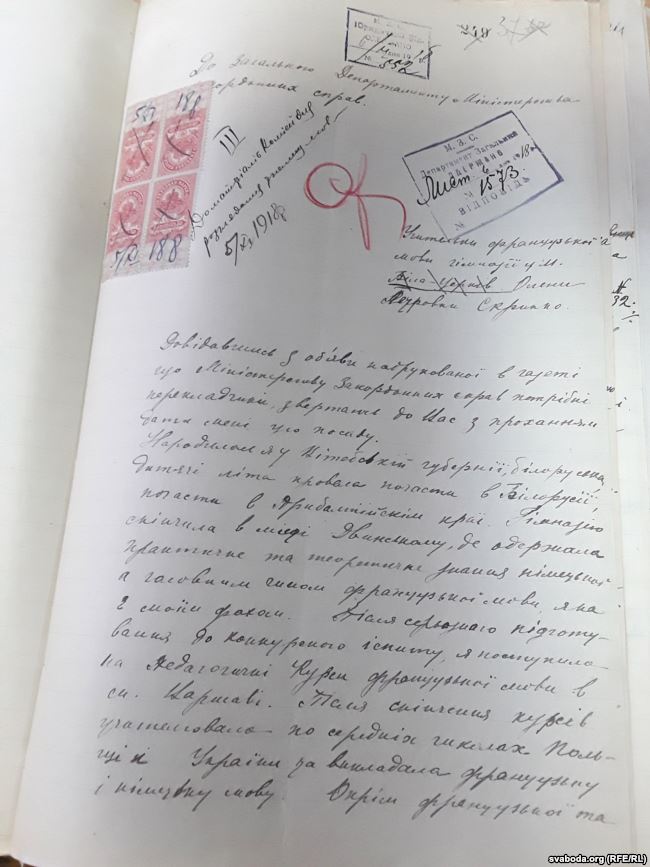 М.З.С.
№ 552
До Загального Департаменту Міністерства
Закордонних справ.
5/XI 188
III
розгляду
5/XI 1918р
М. З. С.
Департамент Загальний
ОДЕРЖАНО
Лист. 6 1918 р.
№ 1573
ВІДПОВІДЬ
№
5/XI 188
Учительки французської
мови гімназії у м.
Біла-Церків Олени
Петровни Скрипко.
N
32.
Довідавшись з об'яви надрукованої в газеті
що Міністерству Закордонних справ потрібні
перекладчики, звертаюсь до Вас з проханням
дати мені цю посаду.
Народилася я у Вітебській губернії, білоруска,
дитячі літа провела почасти в Білорусії,
почасти в Прибалтійскім краї. Гімназію
скінчила в місці Двинському, де одержала
практичне та теоритичне знання німецької
а головним чином французської мови, яка
є моїм фахом. Після серьозного підготу-
вання до конкурсного іспиту, я поступила
на Педагогичні Курси французської мови в
м. Варшаві. Після скінчення курсів
учителювала по середніх школах Поль-
щі й України та викладала французьку
і німецьку мову. Окрім французької та
svaboda.org (RFE/RL)